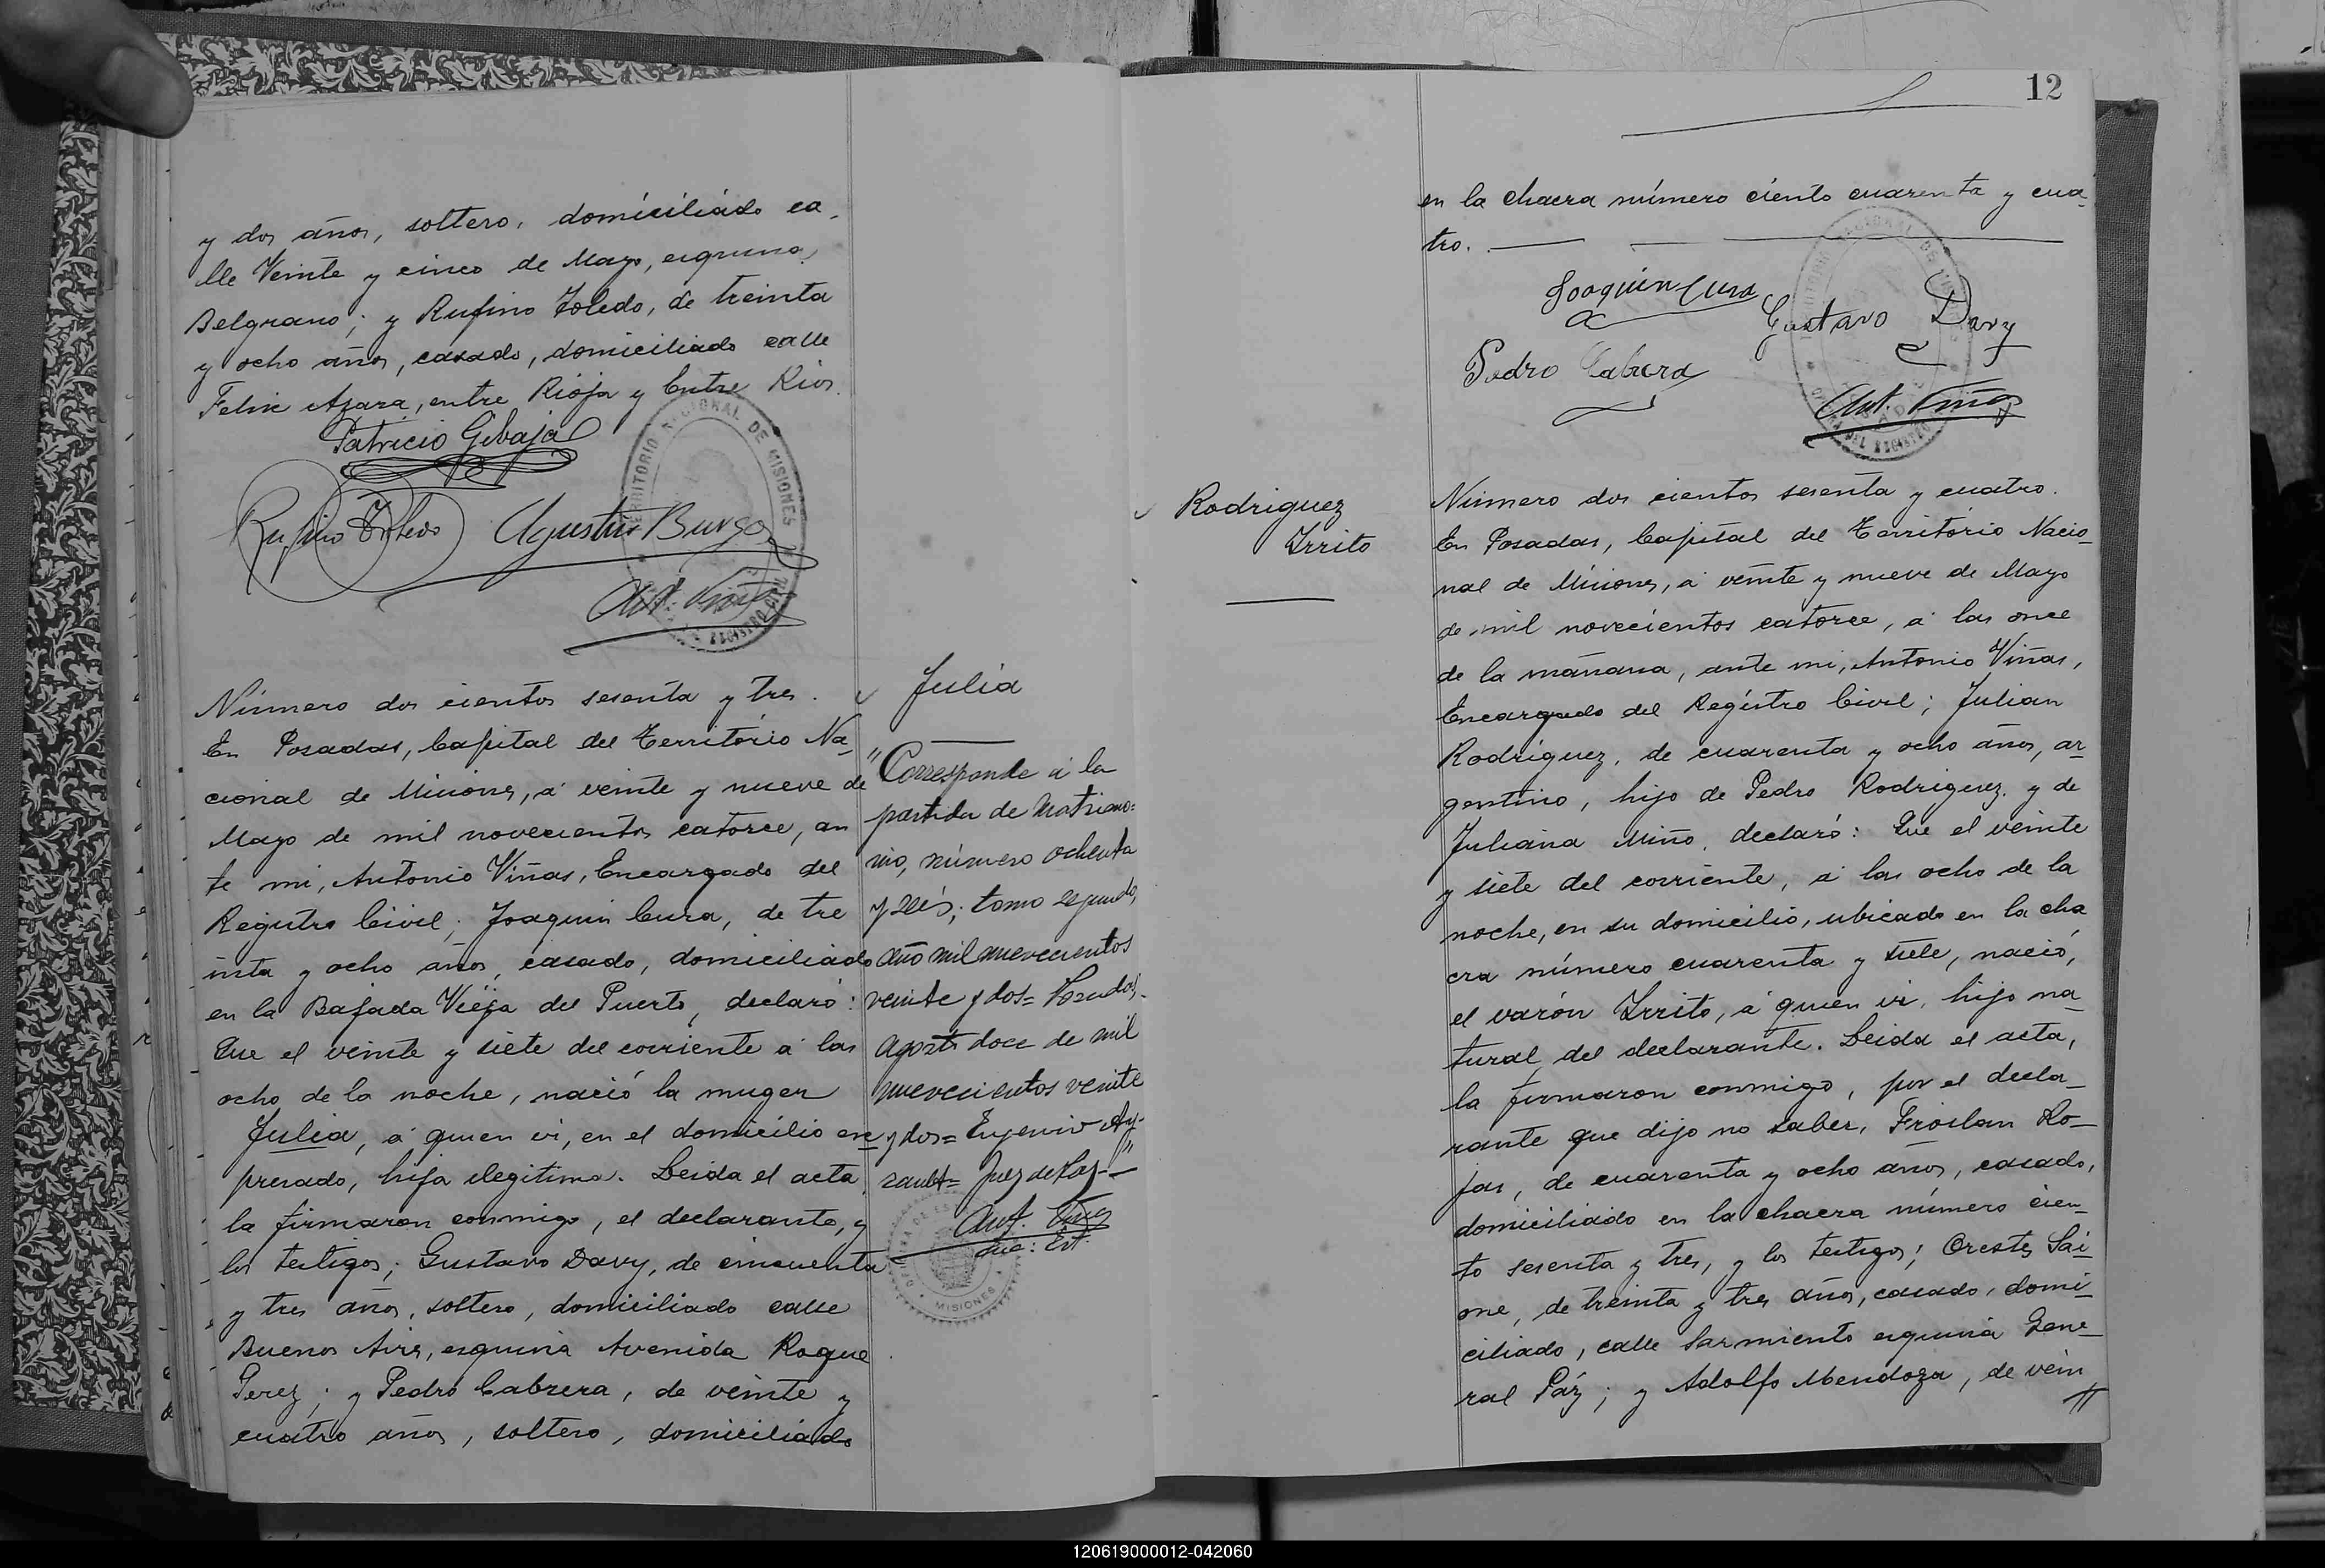 y dos años, soltero, domiciliado ca_
lle Veinte y cinco de Mayo, esquina,
Belgrano; y Rufino Toledo, de treinta
y ocho años, casado, domiciliado calle
Felix Azara, entre Rioja y Entre Rios.
Patricio Gibaja
Rufino Toledo Agustin Burgo
Ant. Viñas
TERRITORIO NACIONAL DE MISIONES
Número dos cientos sesenta y tres.
En Posadas, Capital del Territorio Na_
cional de Misiones, á veinte y nueve de
Mayo de mil novecientos catorce, an
te mi, Antonio Viñas, Encargado del
Registro Civil; Joaquin Cura, de tre
inta y ocho años, casado, domiciliado
en la Bajada Vieja del Puerto, declaró:
Que el veinte y siete del corriente á las
ocho de la noche, nació la muger
Julia, á quien vi, en el domicilio ex_
presado, hija ilegitima. Leida el acta,
la firmaron conmigo, el declarante, y
los testigos; Gustavo Davy, de cincuenta
y tres años, soltero, domiciliado calle
Buenos Aires, esquina Avenida Roque
Perez; y Pedro Cabrera, de veinte y
cuatro años, soltero, domiciliado
Julia
"Corresponde á la
partida de Matrimo=
nio, número ochenta
y seis; tomo segundo,
año mil nuevecientos
veinte y dos= Posadas,
Agosto doce de mil
nuevecientos veinte
y dos= Eugenio
Juez de Paz-"
Ant. Viñas
MISIONES
12
en la chacra número ciento cuarenta y cua_
tro.
Joaquin Cura
Gustavo Davy
Pedro Cabrera
Ant. Viñas
Rodriguez
Irrito
Número dos cientos sesenta y cuatro.
En Posadas, Capital del Territorio Nacio_
nal de Misiones, á veinte y nueve de Mayo
de mil novecientos catorce, á las once
de la mañana, ante mi, Antonio Viñas,
Encargado del Registro Civil; Julian
Rodriguez, de cuarenta y ocho años, ar_
gentino, hijo de Pedro Rodriguez, y de
Juliana Miño, declaró: Que el veinte
y siete del corriente, á las ocho de la
noche, en su domicilio, ubicado en la cha
cra número cuarenta y siete, nació,
el varón Irrito, á quien vi, hijo na_
tural, del declarante. Leida el acta,
la firmaron conmigo, por el decla_
rante que dijo no saber, Froilan Ro_
jas, de cuarenta y ocho años, casado,
domiciliado en la chacra número cien_
to sesenta y tres, y los testigos; Orestes Sai_
one, de treinta y tres años, casado, domi_
ciliado, calle Sarmiento esquina Gene_
ral Páz; y Adolfo Mendoza, de vein
120619000012-042060